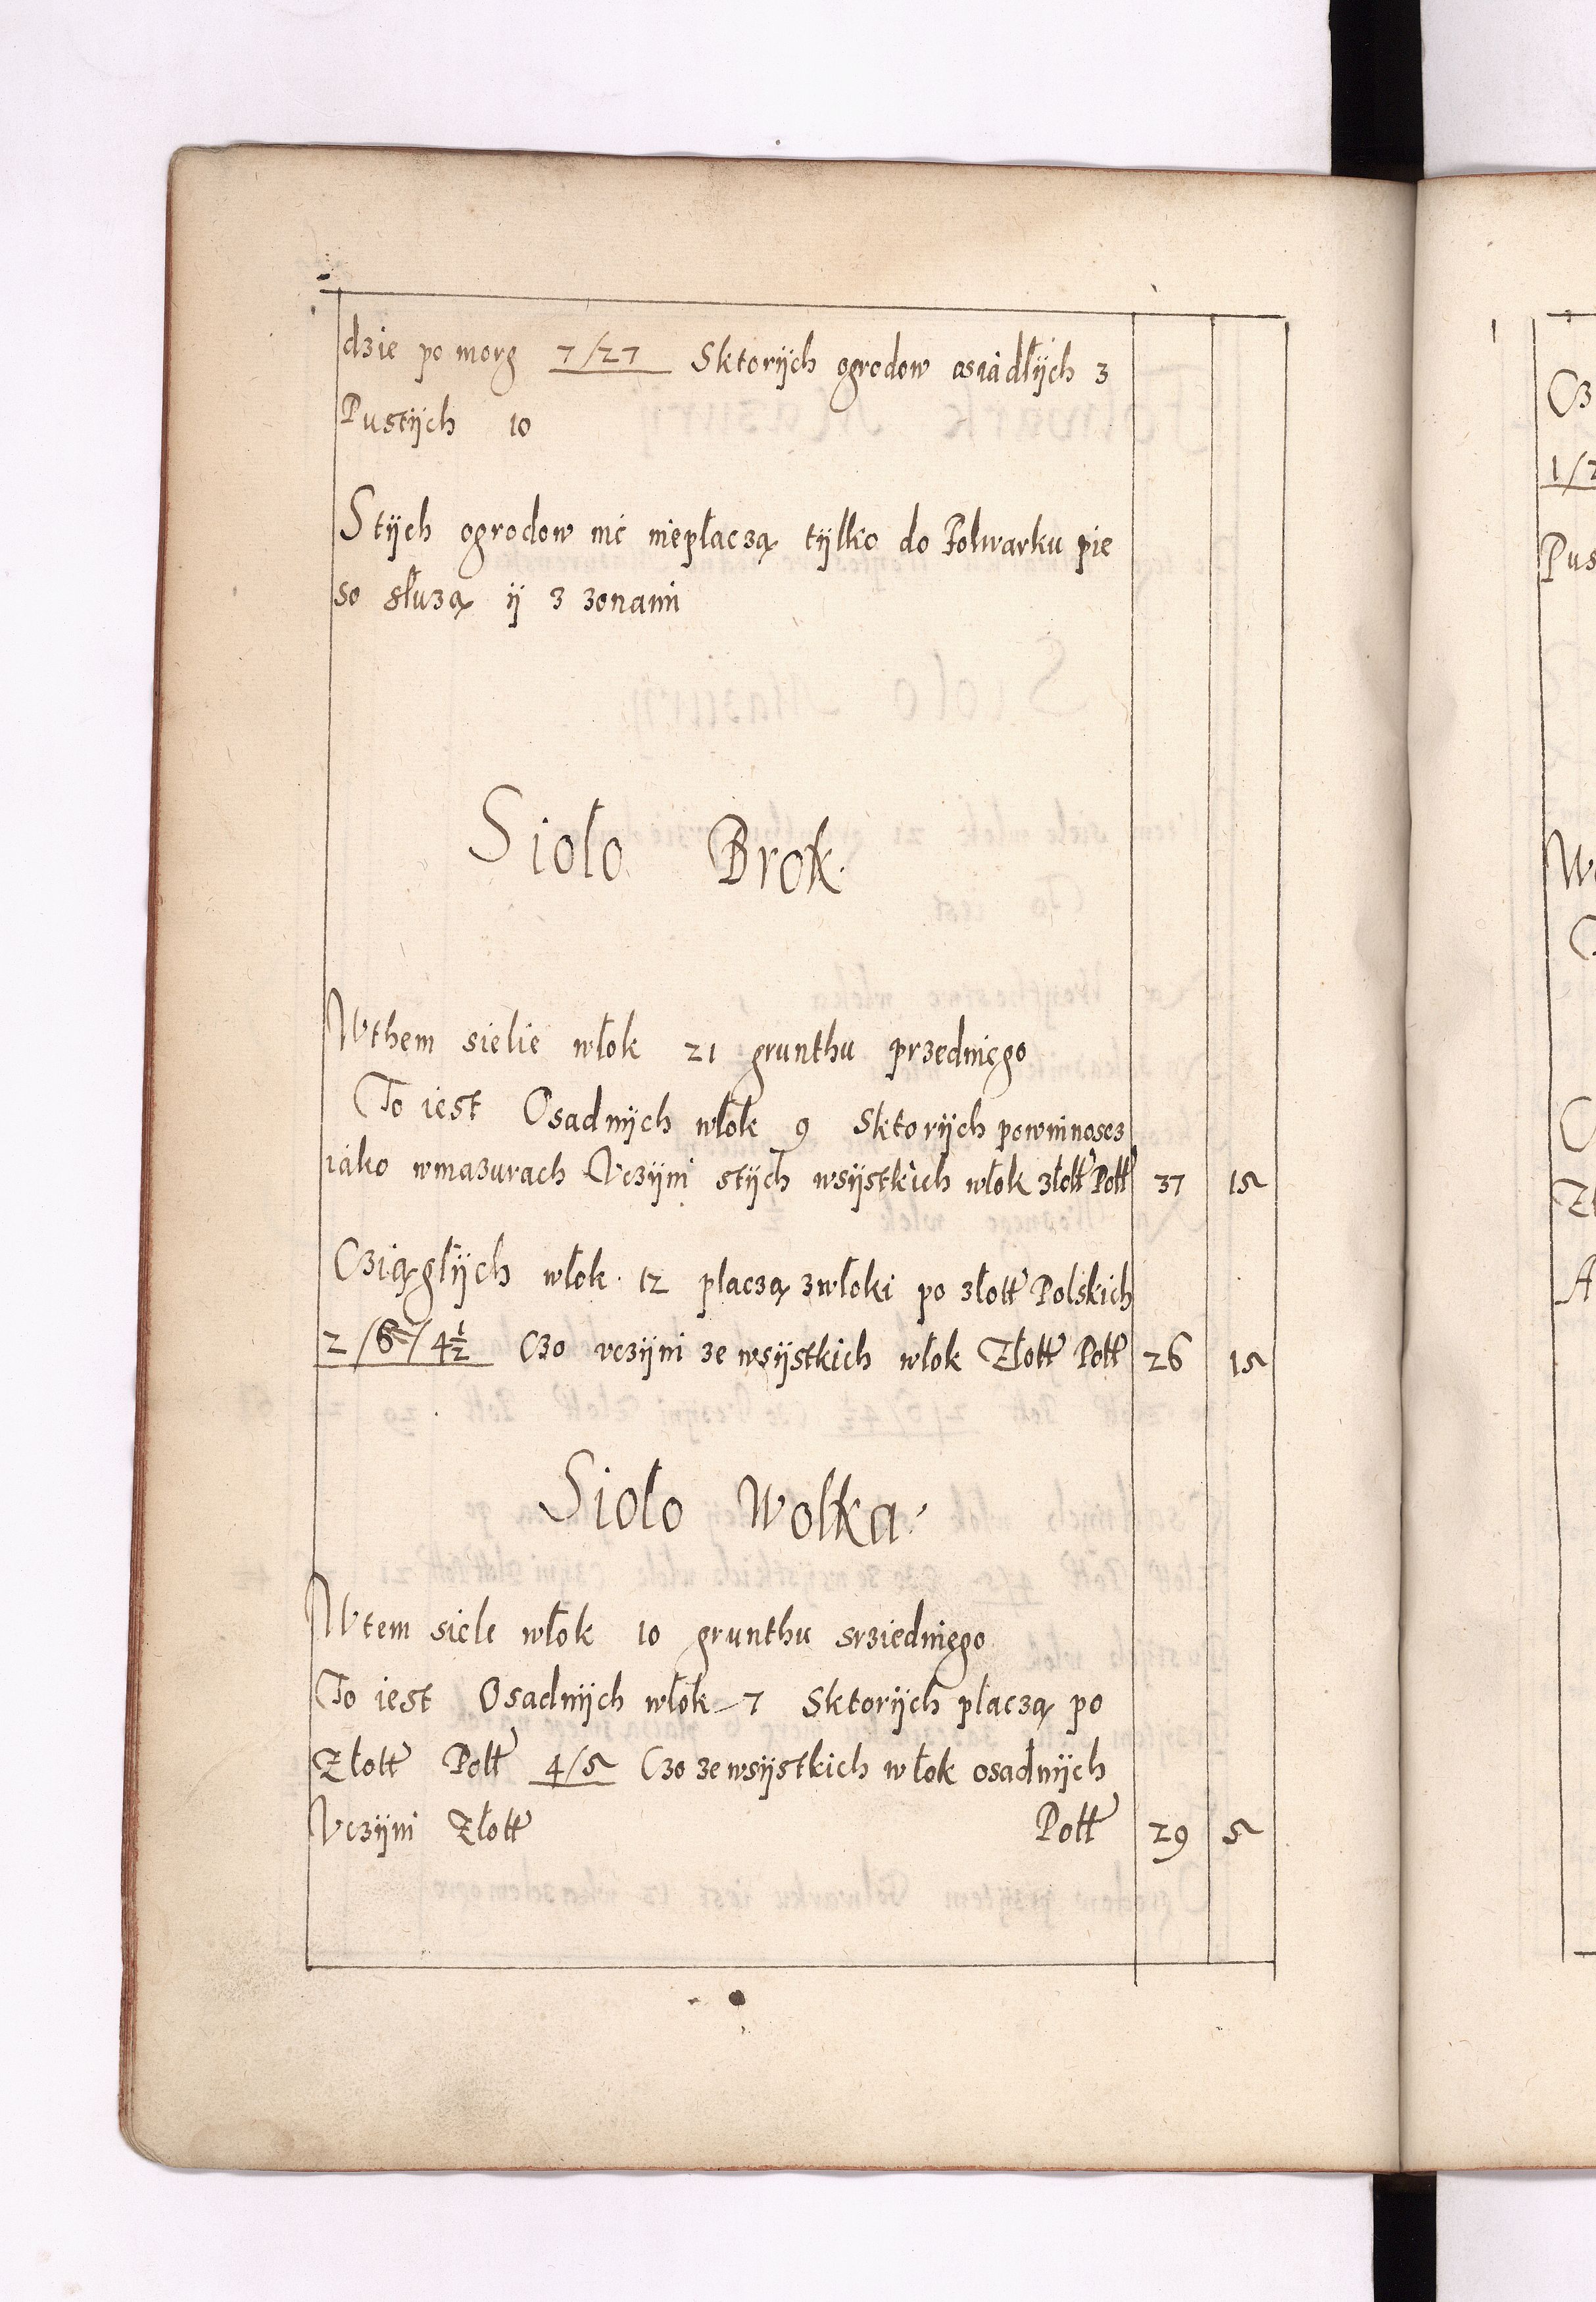 dzie po morg 7/27 Sktorÿch ogrodow asiadłÿch 3
Pustÿch 10
Stÿch ogrodow nic niepłaczą tÿlko do Folwarku pie
so słuzą ÿ z zonami
Sioło Brok.
Wthem sielie włok 21 grunthu przedniego
To iest Osadnÿch włok 9 Sktorÿch powinnoscz
iako wmazurach Vczÿni stÿch wsÿstkich włok złott Poll 37 15
Cziągłÿch włok 12 płaczą zwłoki po złott Polskich
2/6/4½ Czo vczÿni ze wsÿstkich włok Złott Poll 26 15
Sioło Wolka
Wtem siele włok 10 grunthu srziedniego
To iest Osadnÿch włok 7 Sktorÿch płaczą po
Złott Poll 4/5 Czo ze wsÿstkich włok osadnÿch
Vczÿni Złott Poll 29 5